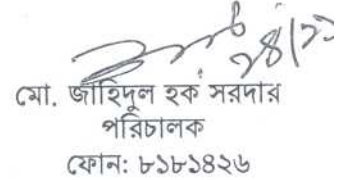 মো. জাহিদুল হক সরদার
পরিচালক
ফোন: ৮১৮১৪২৬